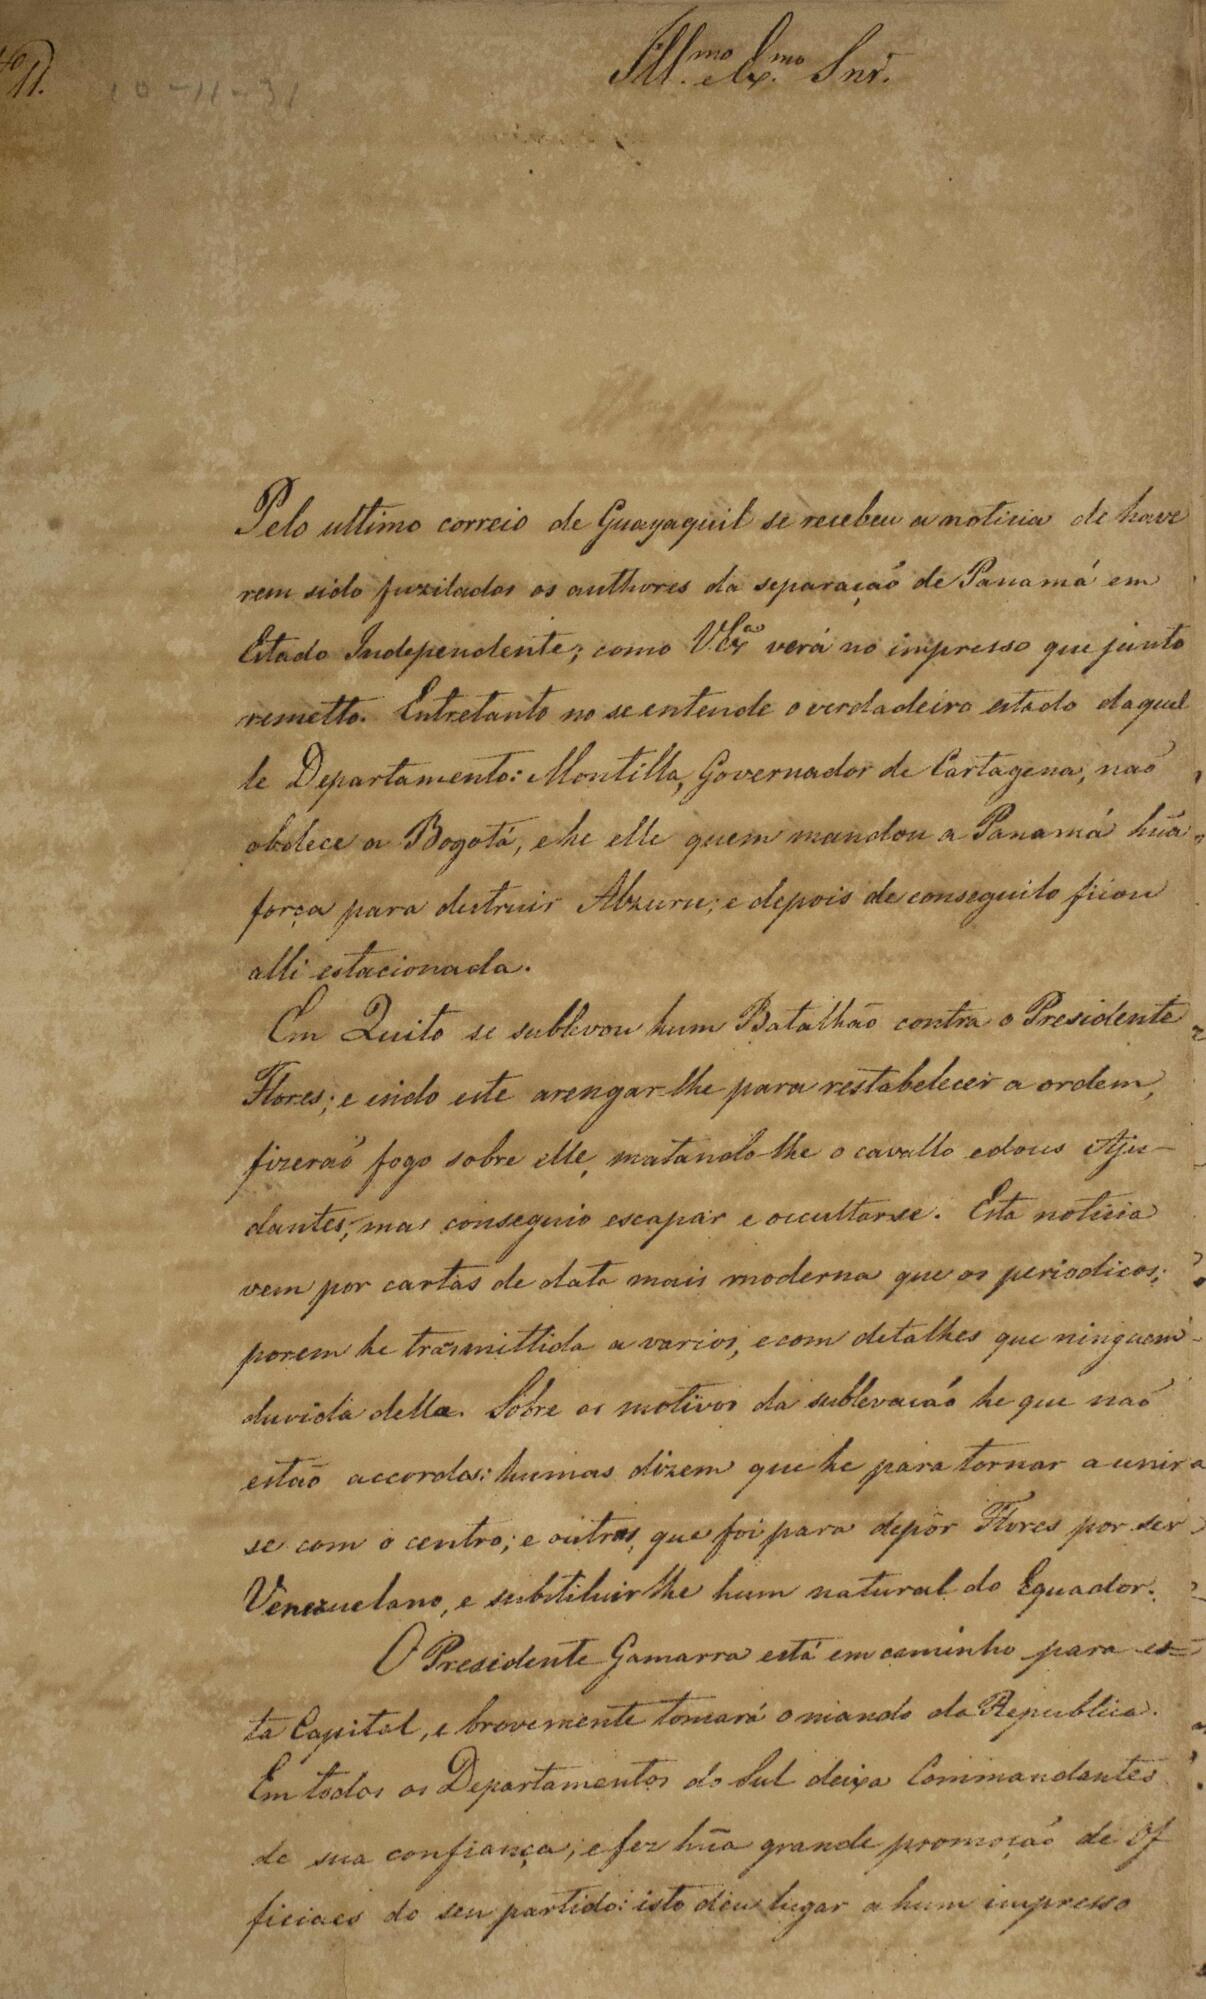 10-11-31
Ill.mo e Ex.mo Snr.
Pelo ultimo correio de Guayaquil se recebeu a noticia de have
rem sido fuzilados os authores da separação de Panamá em
Estado Independente; como V. Exa verá no impresso que junto
remetto. Entretanto no se entende o verdadeiro estado daquel
le Departamento: Montilla, Governador de Cartagena, naõ
obdece a Bogotá, e he elle quem mandou a Panamá hũa
força para destruir Alzuru; e depois de conseguilo ficou
alli estacionada.
Em Quito se sublevou hum Batalhão contra o Presidente
Flores; e indo este arengar-lhe para restabelecer a ordem,
fizeraõ fogo sobre elle, matando-lhe o cavallo e dous Aju-
dantes; mas conseguio escapar e occultarse. Esta noticia
vem por cartas de data mais moderna que os periodicos;
porem he trasmittida a varios, e com detalhes que ninguem
duvida della. Sobre os motivos da sublevação he que naõ
estaõ accordes: humas dizem que he para tornar a unir
se com o centro; e outras, que foi para depôr Flores por ser
Venezuelano, e substituirlhe hum natural do Equador.
O Presidente Gamarra está em caminho para es=
ta Capital, e brevemente tomará o mando da Republica.
Em todos os Departamentos do Sul deixa Commandantes
de sua confiança; e fez hũa grande promoçaõ de Of
ficiaes do seu partido: isto deu lugar a hum impresso